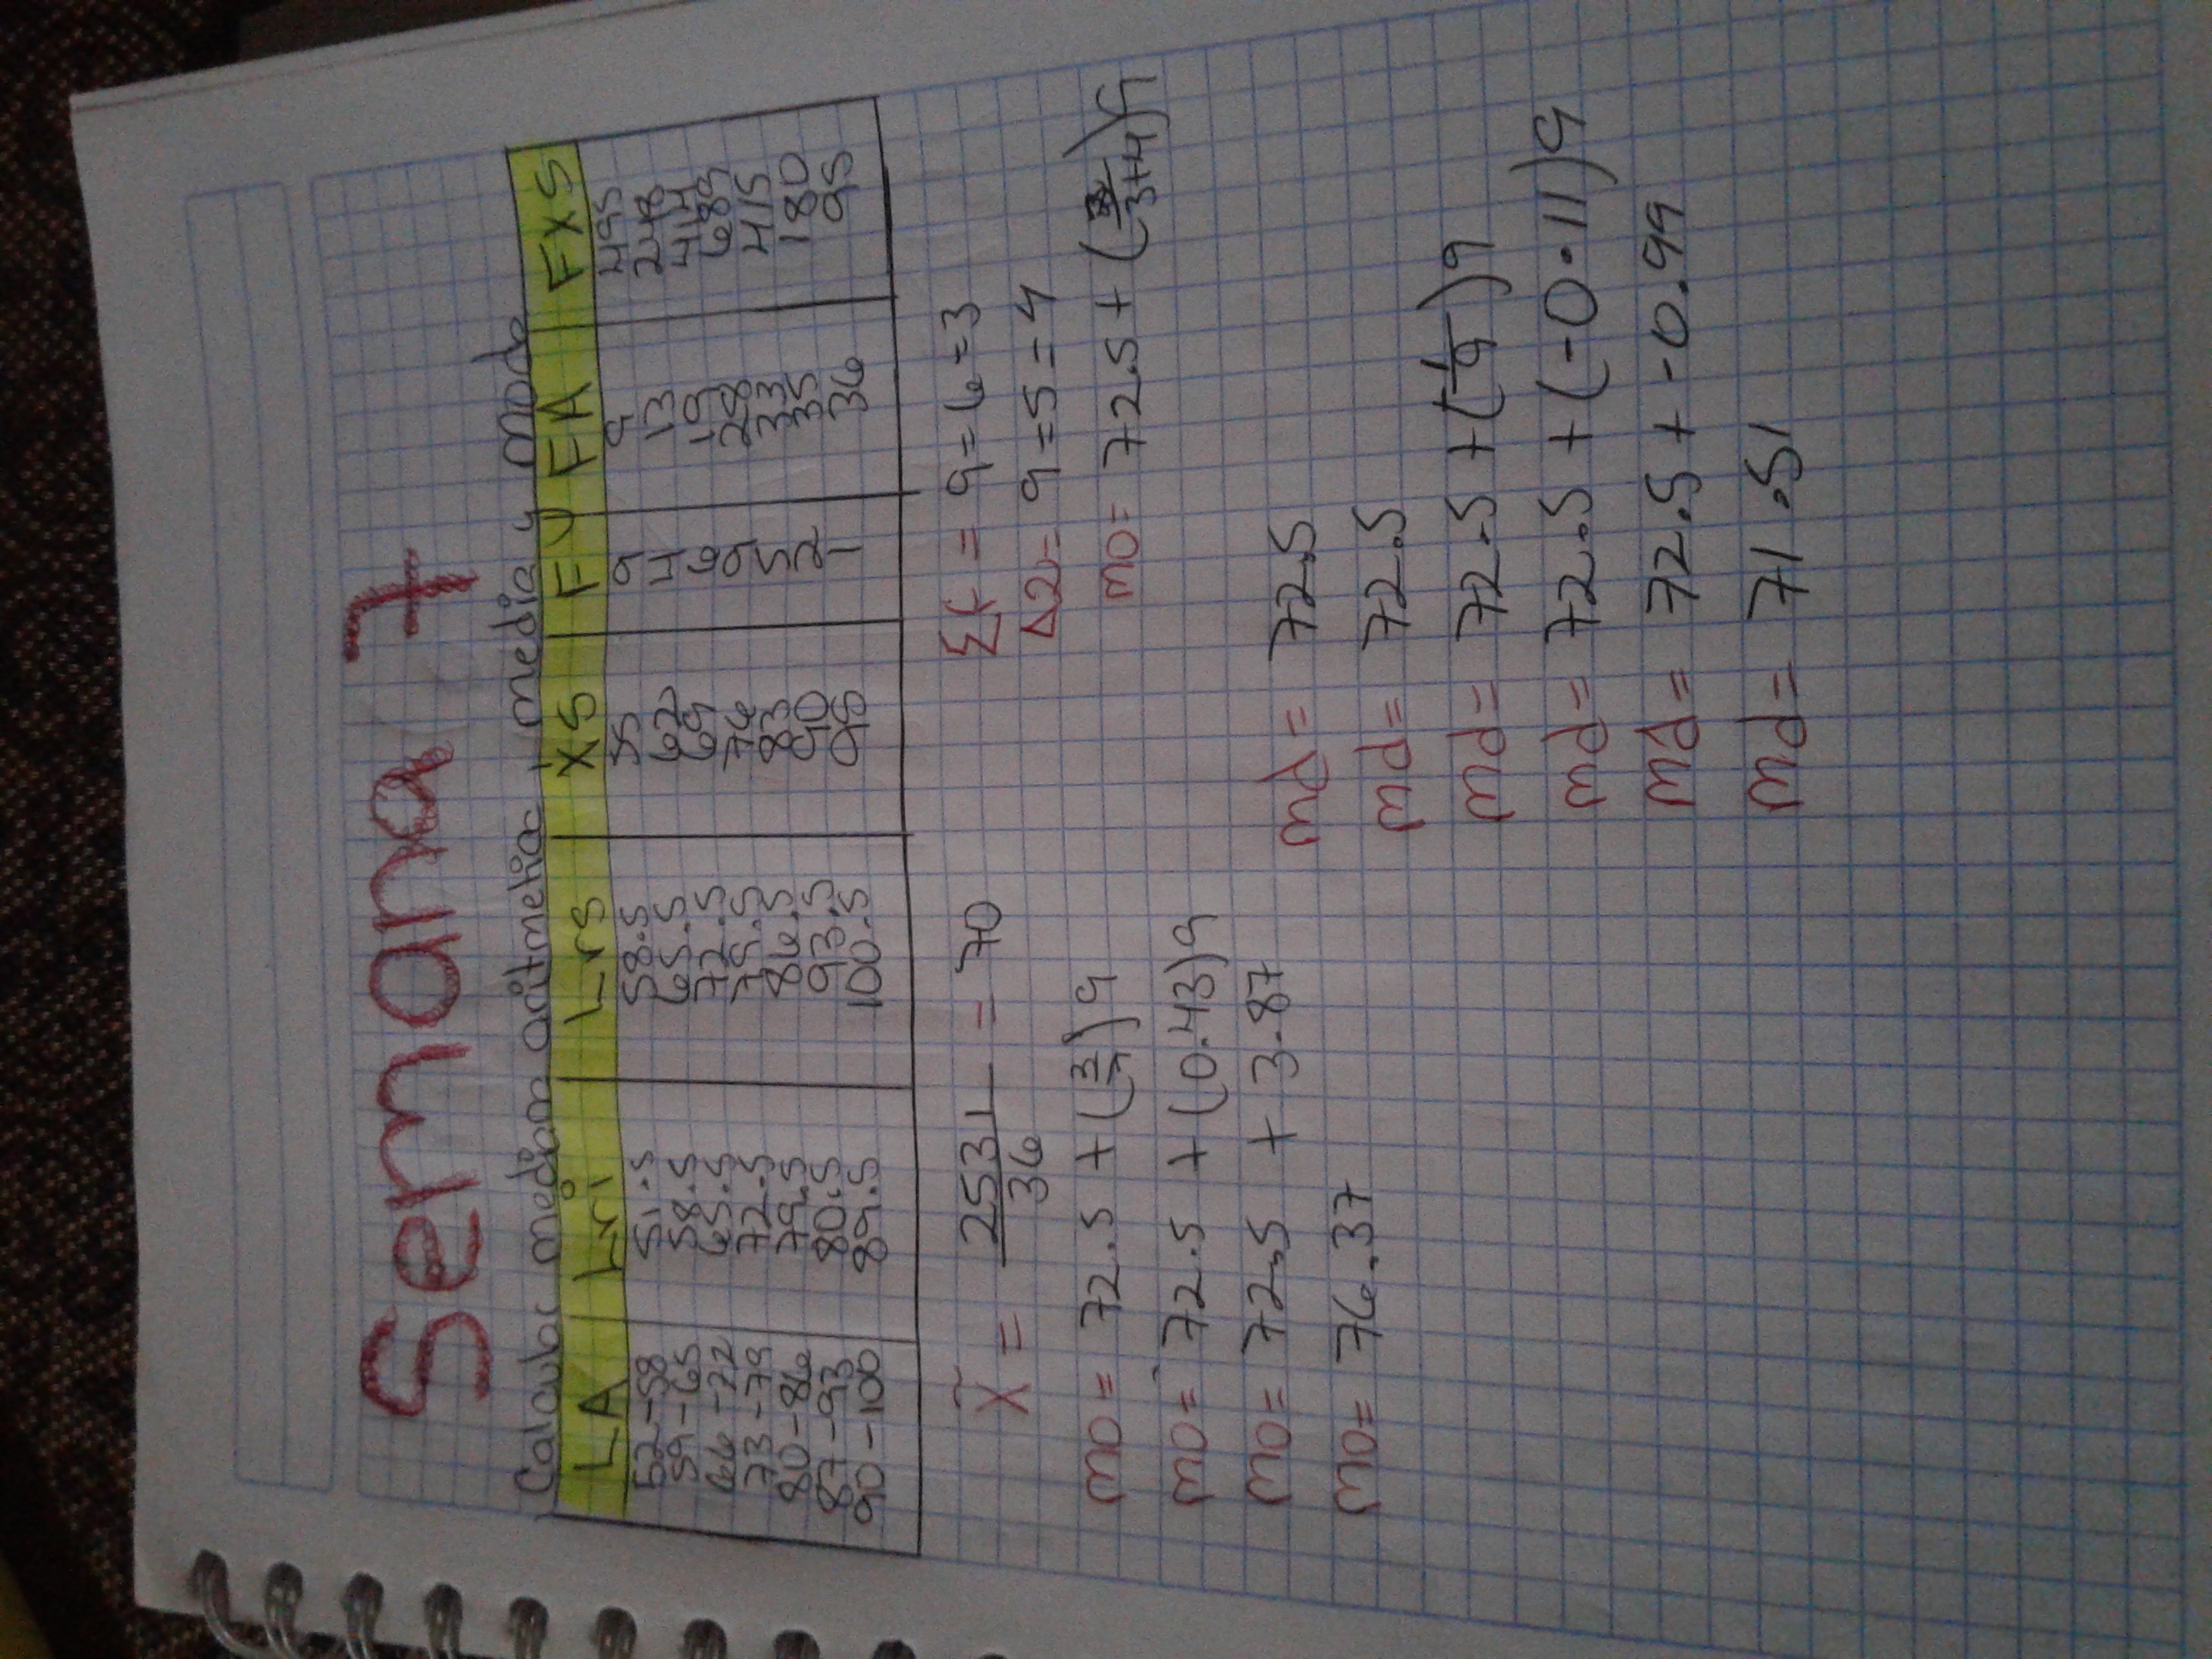 Semana 7
Calcular mediana aritmetica, media y moda
LA Lri Lrs XS FU FA FXS
52-58 51.5 58.5 55 9 9 495
59-65 58.5 65.5 62 4 13 248
66-22 65.5 72.5 69 6 19 414
73-79 72.5 79.5 76 9 28 689
80-86 79.5 86.5 83 5 33 415
87-93 80.5 93.5 90 2 35 180
90-100 89.5 100.5 95 1 36 95
x̄ = 2531/36 = 70
Σf = 9=6=3
Δ2= 9=5=4
mo= 72.5 + (3/3+4)9
mo= 72.5 + (3/7)9
mo= 72.5 + (0.43)9
mo= 72.5 + 3.87
mo= 76.37
md= 72.5
md= 72.5
md= 72.5 + (1/9)9
md= 72.5 + (-0.11)9
md= 72.5 + -0.99
md= 71.51